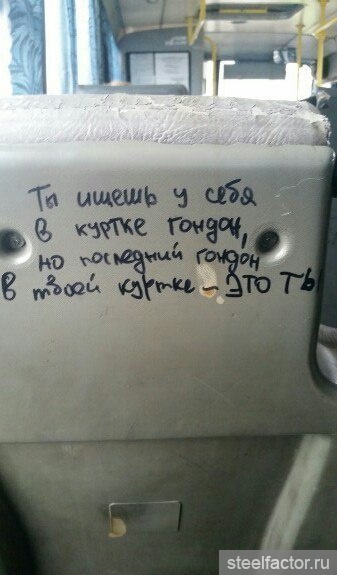 Ты ищешь у себя
в куртке гондон,
но последний гондон
в твоей куртке – это ты
steelfactor.ru